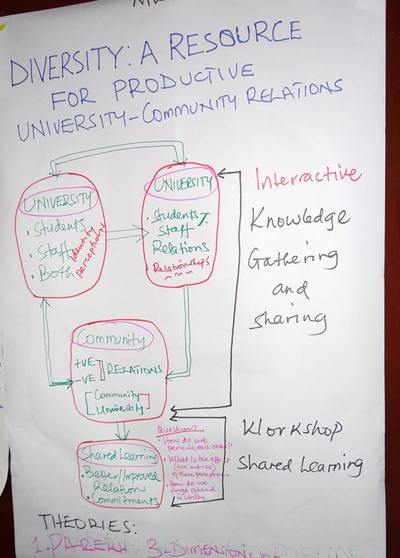 DIVERSITY: A RESOURCE
FOR PRODUCTIVE
UNIVERSITY-COMMUNITY RELATIONS
UNIVERSITY
• Students
• Staff
• Both
Identity
perceptions
UNIVERSITY
• Students/
Staff
Relations
Relationships
Interractive
Knowledge
Gathering
and
sharing
Community
+VE
-VE
RELATIONS
Community
University
Shared Learning
• Better/Improved
Relation
• Commitments
Questions
• How do we
perceive each other?
• What is the effect
(+ve and -ve)
of these perceptions
• How do we
forge ahead
in Unity
Klorkshop
Shared Learning
THEORIES:
1. PAREKH 3-Dimension